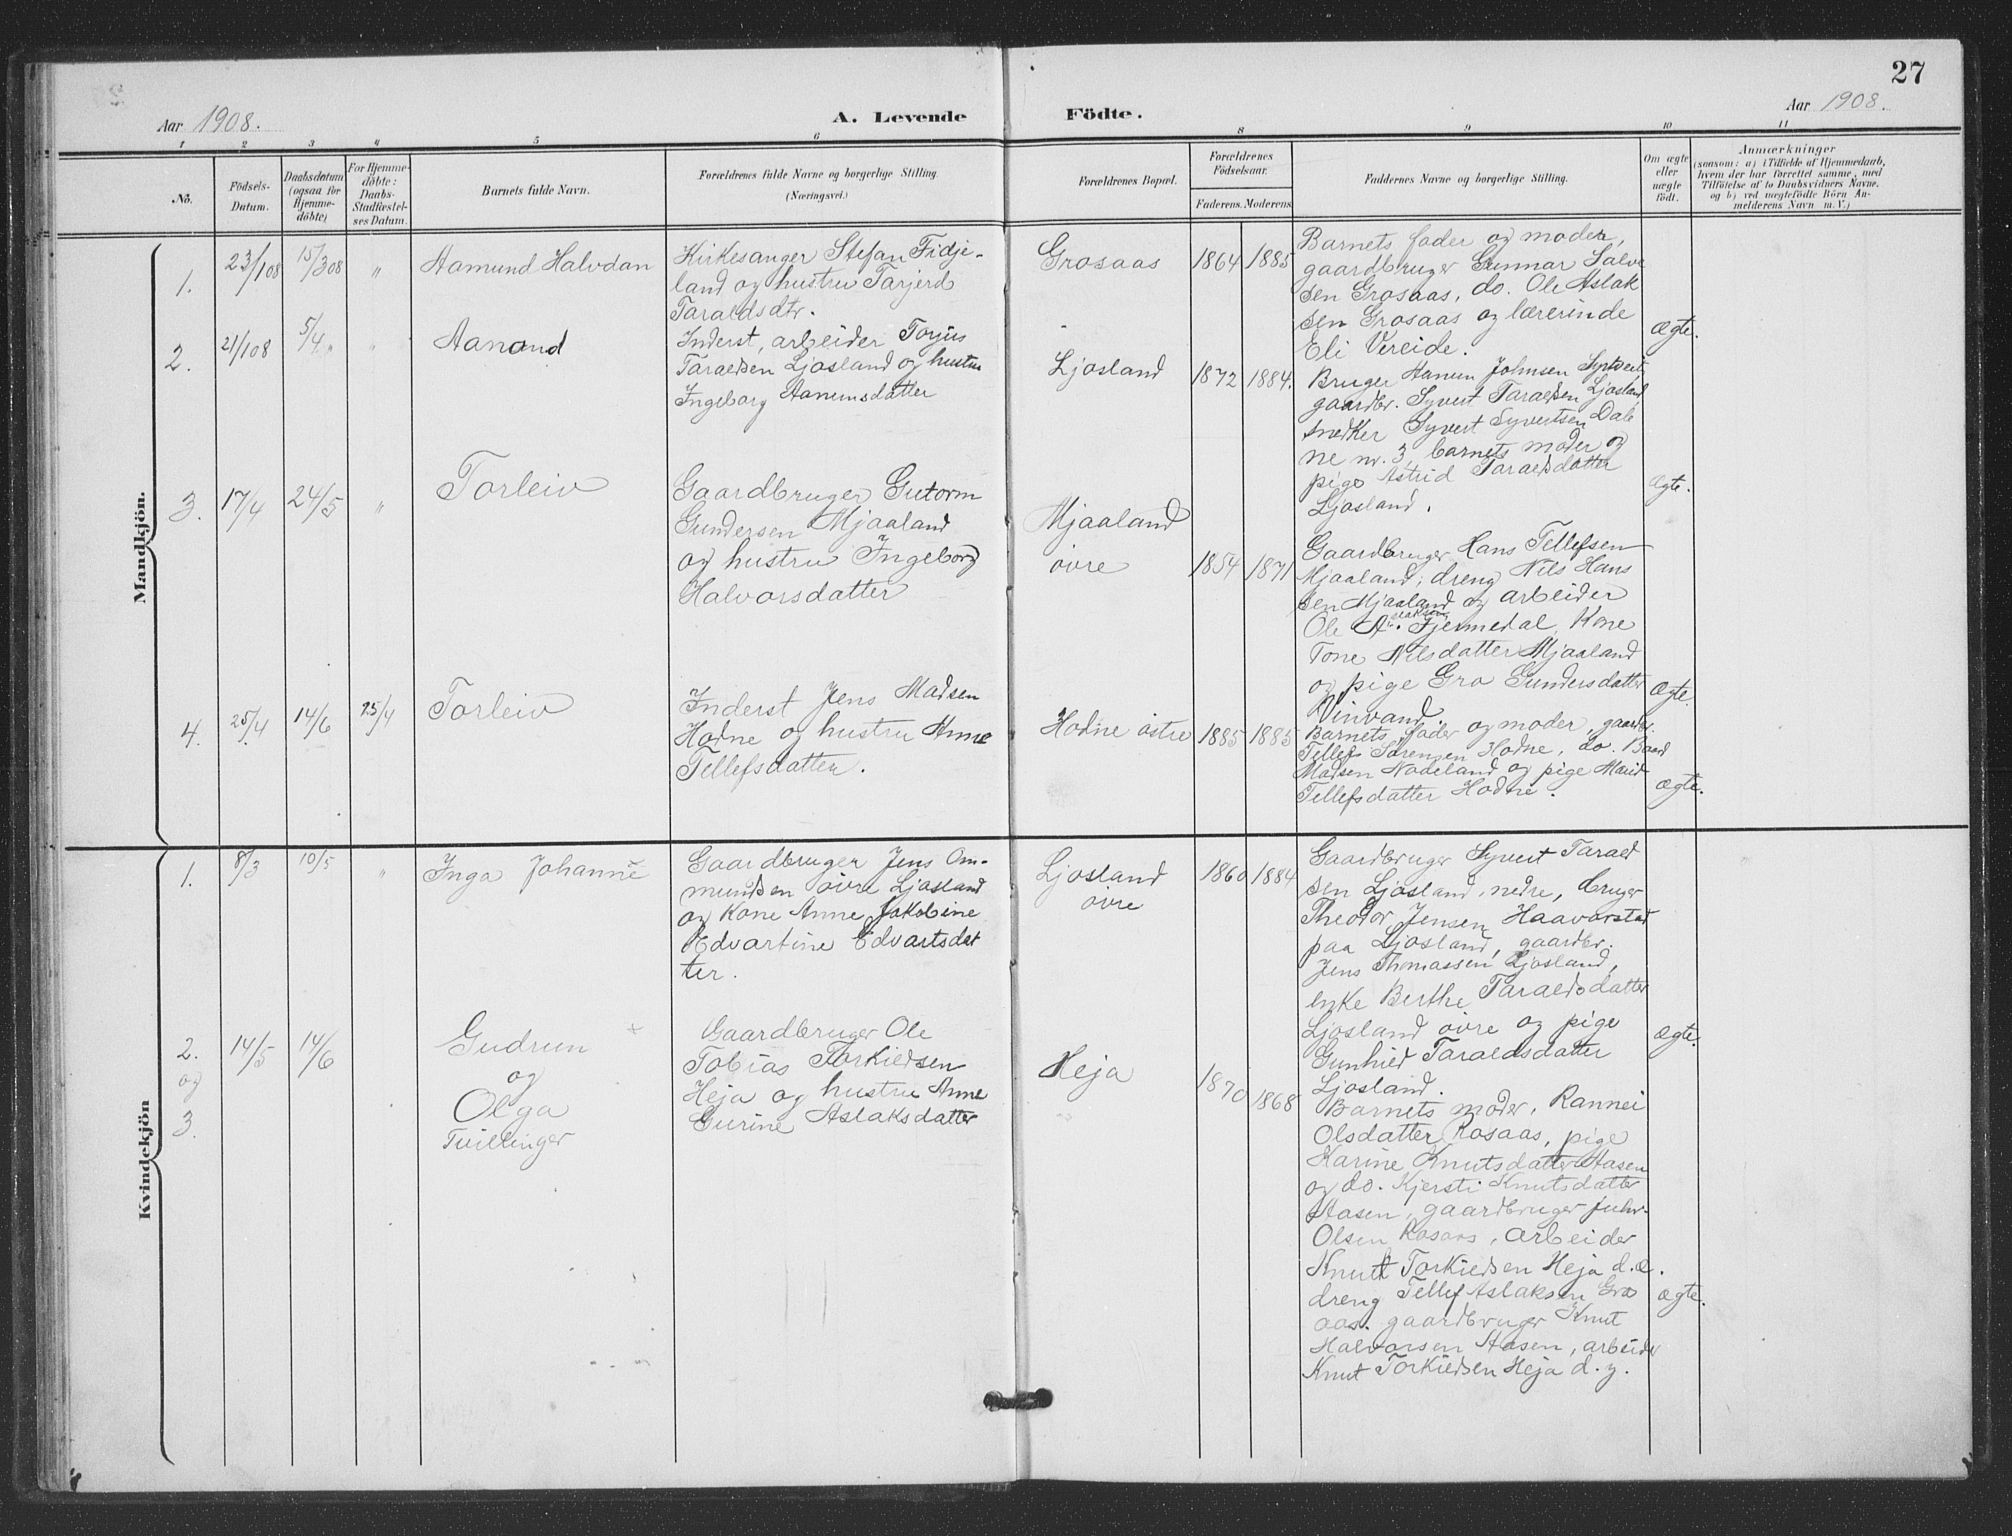 27
Aar 1908.
A. Levende Födte.
Aar 1908.
1 2 3 4 5 6 8 9 10 11
No.
Födsels-
Datum.
Daabsdatum
(ogsaa for
Hjemme-
döbte)
For Hjemme-
döbte:
Daabs-
Stadfæstel-
ses Datum.
Barnets fulde Navn.
Forældrenes fulde Navne og borgerlige Stilling.
(Næringsvei.)
Forældrenes Bopæl.
Forældrenes
Födselsaar.
Faderens. Moderens.
Faddernes Navne og borgerlige Stilling.
Om ægte
eller
uægte
födt.
Anmærkninger
(saasom: a) i Tilfælde af Hjemmedaab,
hvem der har forrettet samme, med
Tilföielse af to Daabsvidners Navne,
og b) ved uægtefödte Börn An-
melderens Navn m. V.)
Mandkjön.
1.
23/1 08
15/3 08
"
Aamund Halvdan
Kirkesanger Stefan Fidje-
land og hustru Tarjerd
Taraldsdtr.
Grosaas
1864
1885
Barnets fader og moder,
gaardbruger Gunnar Salve
sen Grosaas, do. Ole Aslak
sen Grosaas og lærerinde
Eli Vereide.
Ægte.
2.
21/1 08
5/4 "
"
Aanond
Inderst, arbeider Torjus
Taraldsen Ljosland og hustru
Ingeborg Aanumsdatter
Ljosland
1872
1884.
Bruger Hanum Johnsen
gaardbr. Syvert Taraldsen Ljosland
snedker Syvert Syvertsen Dale
ne nr. 3, barnets moder og
pige Astrid Taraldsdatter
Ljosland.
Ægte.
3.
17/4
24/5
"
Torleiv
Gaardbruger Gutorm
Gundersen Mjaaland
og hustru Ingeborg
Halvorsdatter
Mjaaland
övre
1854
1871
Gaardbruger Hans Tellefsen
Mjaaland, dreng Nils Hans
sen Mjaaland og arbeider
Ole Aslaksen Fjermedal, Kone
Tone Nilsdatter Mjaaland
og pige Gro Gundersdatter
Vinvand.
Ægte.
4.
25/4
14/6
25/4
Torleiv
Inderst Jens Madsen
Hodne og hustru Anne
Tellefsdatter.
Hodne östre
1885
1885
Barnets fader og moder, gaardbr.
Tellef Sörensen Hodne, do. Baard
Madsen Nodeland og pige Marid
Tellefsdatter Hodne.
Ægte.
Kvindekjön
1.
8/3
10/5
"
Inga Johanne
Gaardbruger Jens Om-
mundsen övre Ljosland
og Kone Anne Jakobine
Edvartine Edvartsdat
ter.
Ljosland
övre
1860
1884
Gaardbruger Syvert Tarald
sen Ljosland nedre, bruger
Theodor Jensen Haavorstad
paa Ljosland, gaardbr.
Jens Thomassen Ljosland,
enke Berthe Taraldsdatter
Ljosland övre og pige
Gunhild Taraldsdatter
Ljosland.
Ægte.
2.
og
3.
14/5
14/6
Gudrun
og
Olga
Tvillinger
Gaardbruger Ole
Tobias Torkildsen
Heja og hustru Anne
Gurine Aslaksdatter
Heja
1870
1868
Barnets moder, Rannei
Olsdatter Rosaas, pige
Karine Knutsdatter Aasen
og do. Kjersti Knutsdatter
Aasen, gaardbruger
Olsen Rosaas, arbeider
Knut Torkildsen Heja d.æ.
dreng Tellef Aslaksen Gros
aas. gaardbruger Knut
Halvorsen Aasen, arbeider
Knut Torkildsen Heja d.y.
Ægte.